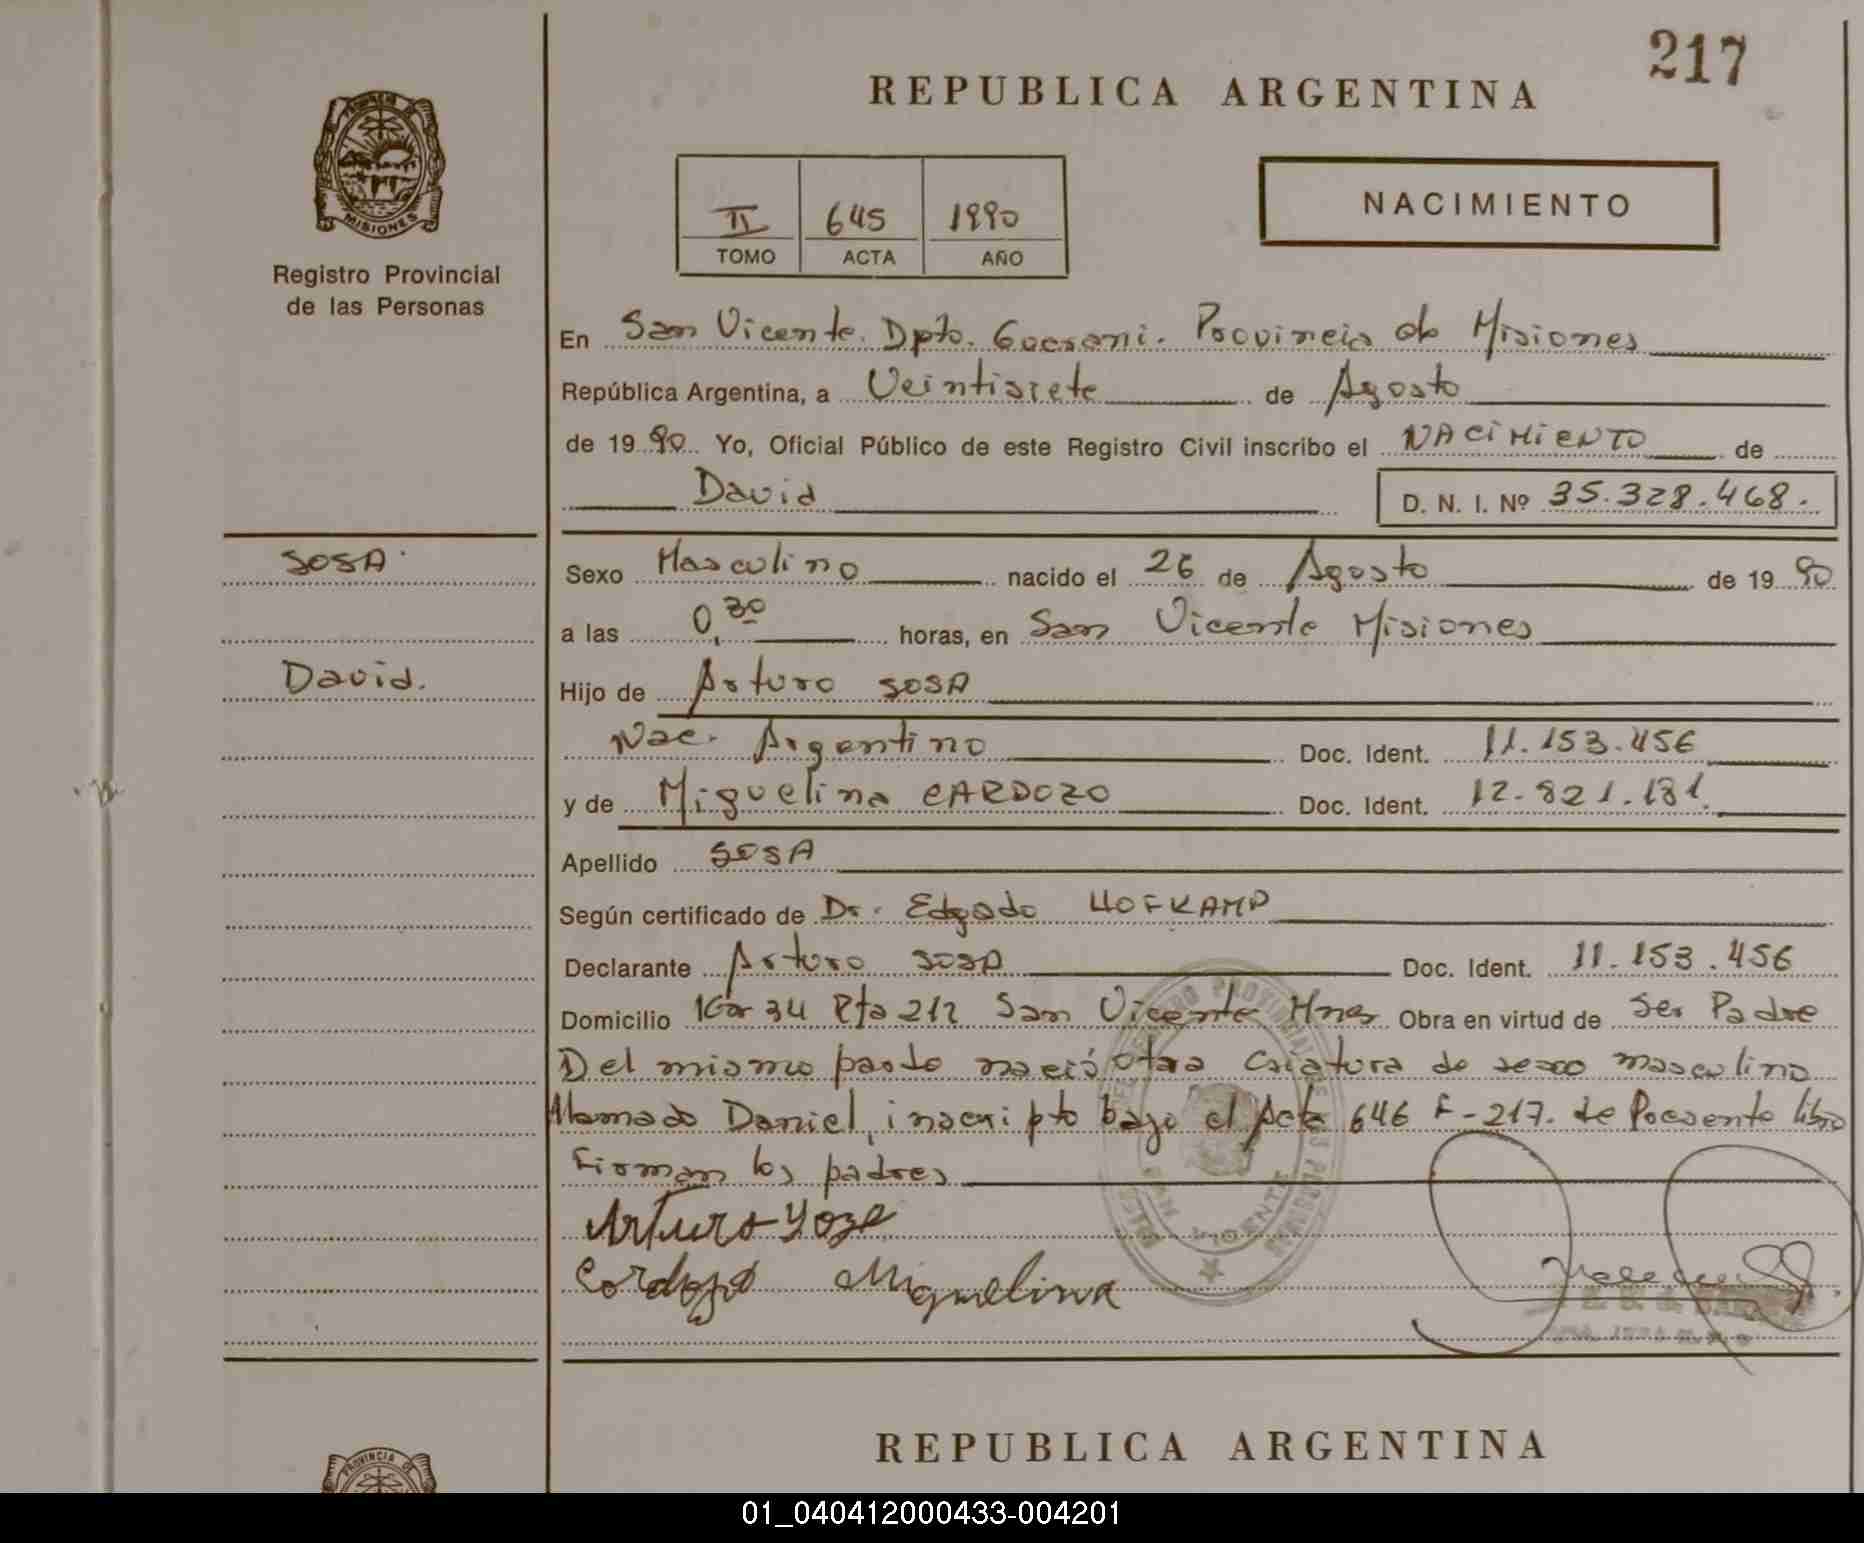 217
REPUBLICA ARGENTINA
PROVINCIA DE
MISIONES
Registro Provincial
de las Personas
II 645 1990
TOMO ACTA AÑO
NACIMIENTO
En San Vicente. Dpto. Guarani. Provincia de Misiones
República Argentina, a Veintisiete de Agosto
de 1990 Yo, Oficial Público de este Registro Civil inscribo el NACIMIENTO de
David D. N. I. Nº 35.328.468.
SOSA
Sexo Masculino nacido el 26 de Agosto de 1990
a las 0,30 horas, en San Vicente Misiones
David.
Hijo de Arturo SOSA
Nac. Argentino Doc. Ident. 11.153.456
y de Miguelina CARDOZO Doc. Ident. 12.821.181.
Apellido SOSA
Según certificado de Dr. Edgado HOFKAMP
Declarante Arturo SOSA Doc. Ident. 11.153.456
Domicilio Km 34 Rta 212 San Vicente Mnes Obra en virtud de Ser Padre
Del mismo parto nació otra criatura de sexo masculino
llamado Daniel, inscripto bajo el Acta 646 F-217. de Presente libro
Firman los padres
Arturo Soza
Cordozo Miguelina
REPUBLICA ARGENTINA
PROVINCIA DE
01_040412000433-004201